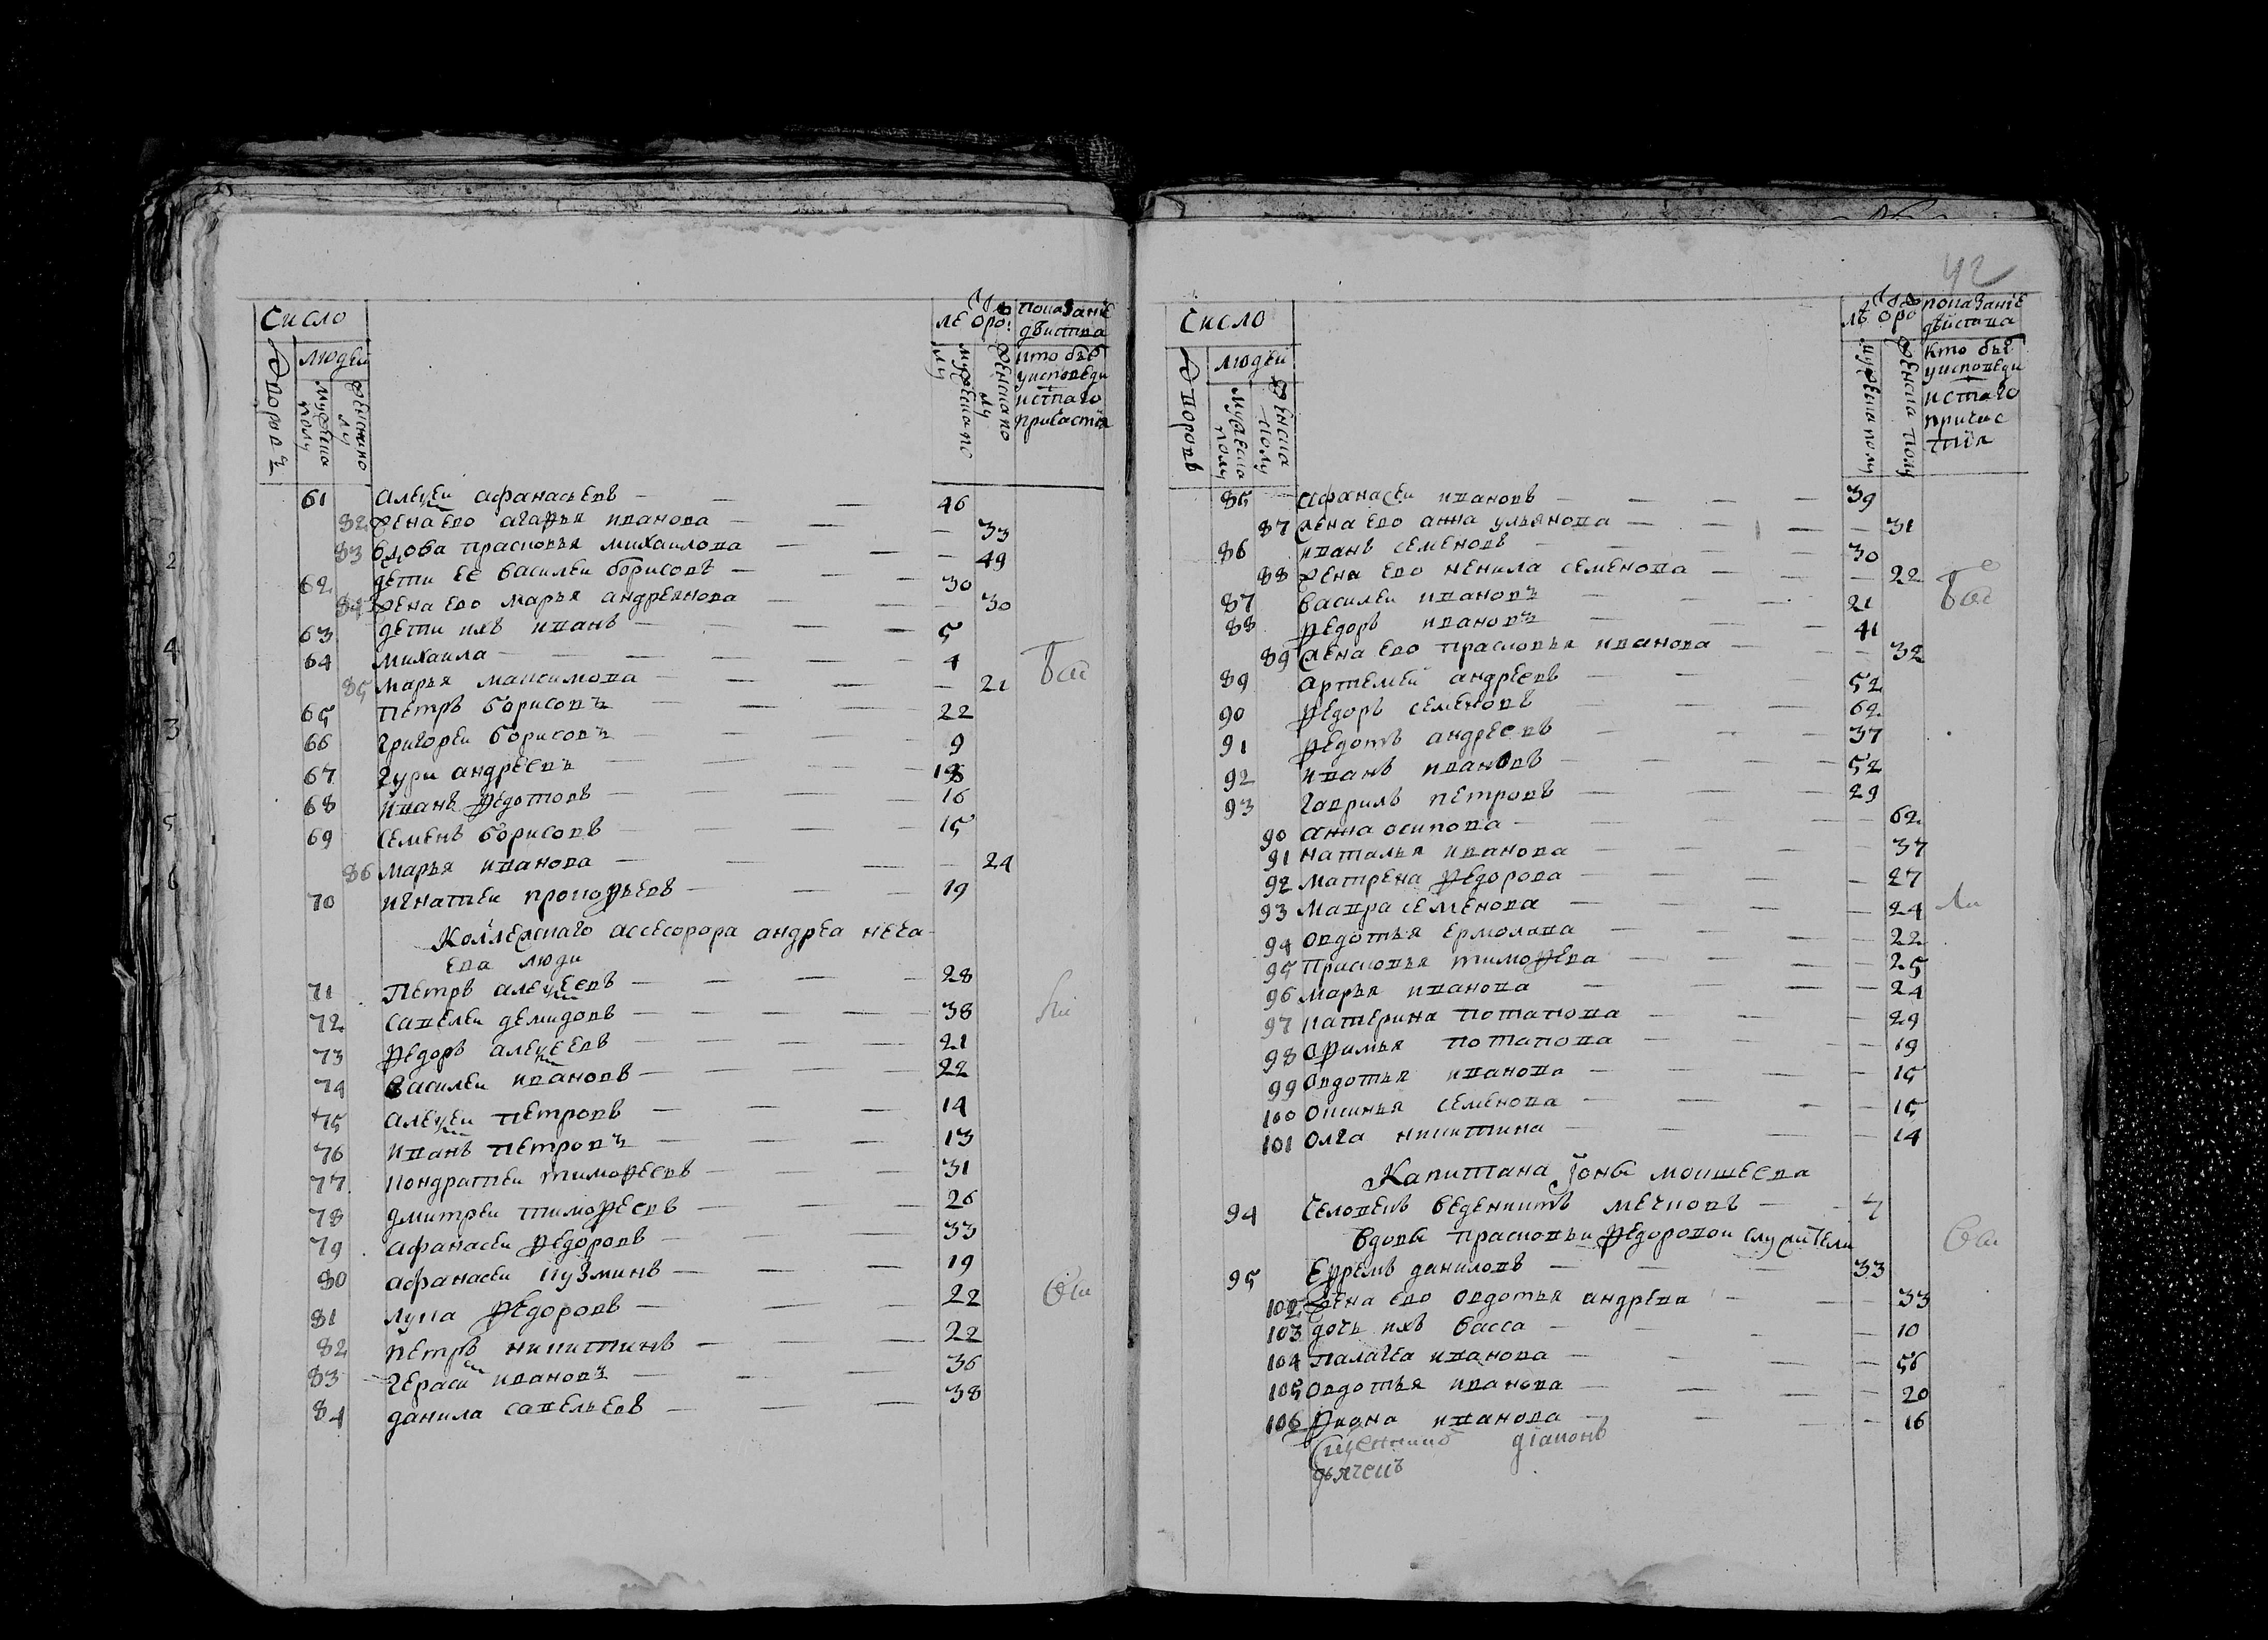 Число
людей
дворовъ
мужеска полу
женска полу
лѣ оро:
мужеска полу
женска полу
показаніе дѣиства
кто былъ у исповеди и стаго причастія
61 алеѯеи афанасьевъ — — — 46
82 жена ево агафья иванова — — — 33
83 вдова прасковья михаилова — — — 49
62 дети ее василеи борисовъ — — — 30
84 жена ево марья андреянова — — — 30
63 дети ихъ иванъ — — — 5
64 михаила — — — 4
85 марья максимова — — — 21
65 петръ борисовъ — — — 22
66 григореи борисовъ — — — 9
67 гури андреевъ — — —
68 иванъ ѳедотовъ — — — 16
69 семенъ борисовъ — — — 15
86 марья иванова — — — 24
70 игнатеи прокоѳьевъ — — — 19
Коллежскаго ассесорора андреа неея
ева люди
71 Петръ алеѯеевъ — — — 28
72 савелеи демидовъ — — — 38
73 ѳедоръ алеѯеевъ — — — 21
74 василеи ивановъ — — — 22
75 алеѯеи петровъ — — — 14
76 иванъ петровъ — — — 13
77 кондратеи тимоѳеевъ — — — 31
78 дмитреи тимоѳеевъ — — — 26
79 афанасеи ѳедоровъ — — — 33
80 афанасеи кузминъ — — — 19
81 лука ѳедоровъ — — — 22
82 петръ никитинъ — — — 22
83 гераси ивановъ — — — 36
84 данила савельевъ — — — 38
42
Число
людей
дворовъ
мужеска полу
женска полу
лѣ оро
мужеска полу
женска полу
показаніе дѣиства
кто былъ у исповеди и стаго причастія
85 афанасеи ивановъ — — — 39
87 жена ево анна ульянова — — — 31
86 иванъ семеновъ — — — 30
88 жена ево ненила семенова — — — 22
87 василеи ивановъ — — — 21
88 ѳедоръ ивановъ — — — 41
89 жена ево прасковья иванова — — — 32
89 артемеи андреевъ — — — 52
90 ѳедоръ семеновъ — — — 62
91 ѳедотъ андреевъ — — — 37
92 иванъ ивановъ — — — 52
93 гаврилъ петровъ — — — 29
90 анна осипова — — — 62
91 наталья иванова — — — 37
92 матрена ѳедорова — — — 27
93 мавра семенова — — — 24
94 овдотья ермолава — — — 22
95 прасковья тимоѳева — — — 25
96 марья иванова — — — 24
97 катерина потапова — — — 29
98 оѳимья потапова — — — 19
99 овдотья иванова — — — 15
100 оксинья семенова — — — 15
101 олга никитина — — — 14
Капитана Іоны моишеева
94 Человекъ бедениктъ мечковъ — — 4
вдовы прасковьи ѳедоровои служители
95 Еѳремъ даниловъ — — — 33
102 жена ево овдотья андрева — — — 33
103 дочь ихъ васса — — — 10
104 палагеа иванова — — — 56
105 овдотья иванова — — — 20
106 ѳиона иванова — — — 16
Сщенникъ діаконъ
дьячекъ